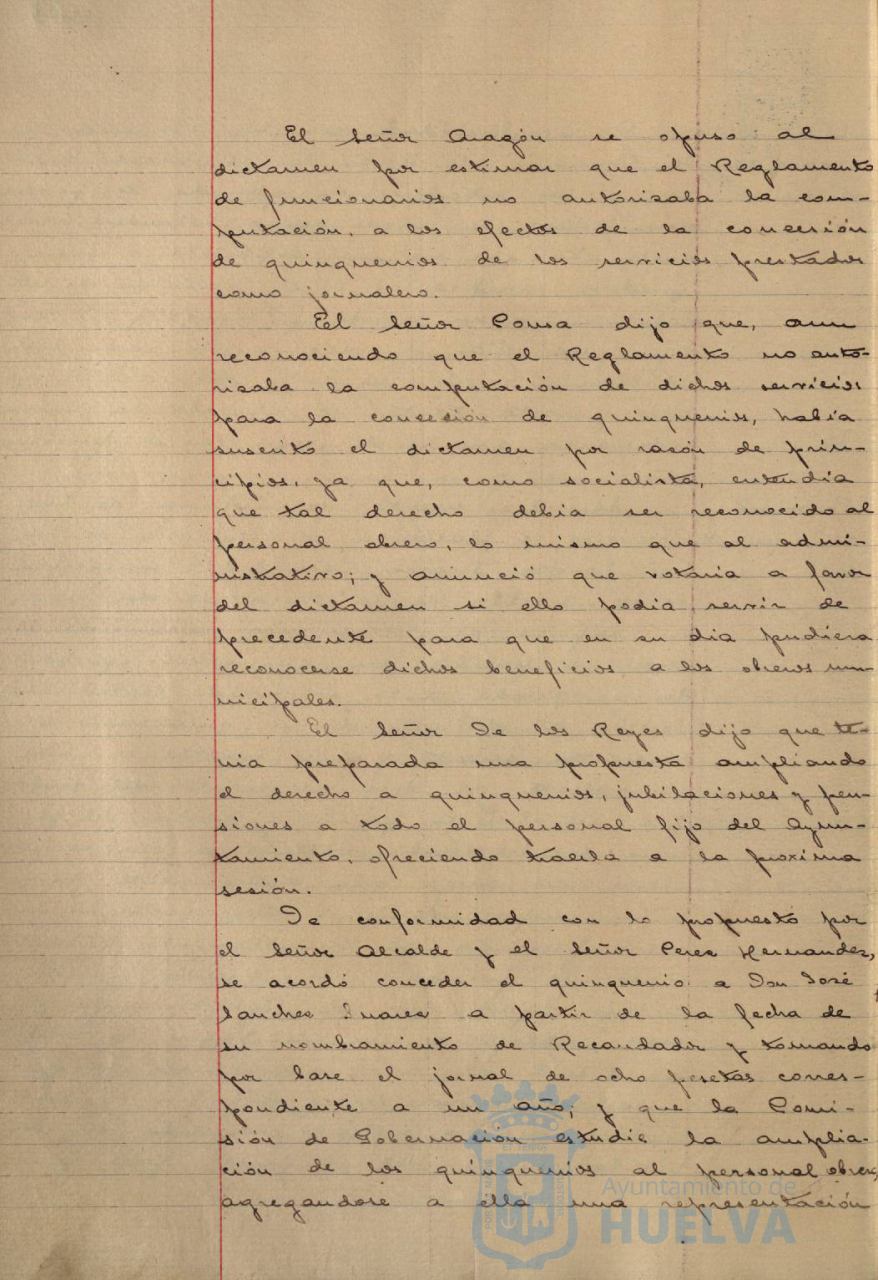 El Señor Aragón se opuso al
dictamen por estimar que el Reglamento
de funcionarios no autorizaba la com-
putación, a los efectos de la concesión
de quinquenios de los servicios prestados
como jornalero.
El Señor Ponsa dijo que, aun
reconociendo que el Reglamento no auto-
rizaba la computación de dichos servicios
para la concesión de quinquenios, había
suscrito el dictamen por razón de prin-
cipios, ya que, como socialista, entendía
que tal derecho debia ser reconocido al
personal obrero, lo mismo que al admi-
nistrativo; y anunció que votaria a favor
del dictamen si ello podia servir de
precedente para que en su dia pudiera
reconocerse dichos beneficios a los obreros mu-
nicipales.
El Señor De los Reyes dijo que te-
nia preparada una propuesta ampliando
el derecho a quinquenios, jubilaciones y pen-
siones a todo el personal fijo del Ayun-
tamiento, ofreciendo traerla a la proxima
sesión.
De conformidad con lo propuesto por
el Señor Alcalde y el Señor Perez Hernandez,
se acordó conceder el quinquenio a Don José
Sanchez Suarez a partir de la fecha de
su nombramiento de Recaudador y tomando
por base el jornal de ocho pesetas corres-
pondiente a un año; y que la Comi-
sión de Gobernación estudie la amplia-
ción de los quinquenios al personal obrero,
agregandose a ella una representación
Ayuntamiento de
HUELVA